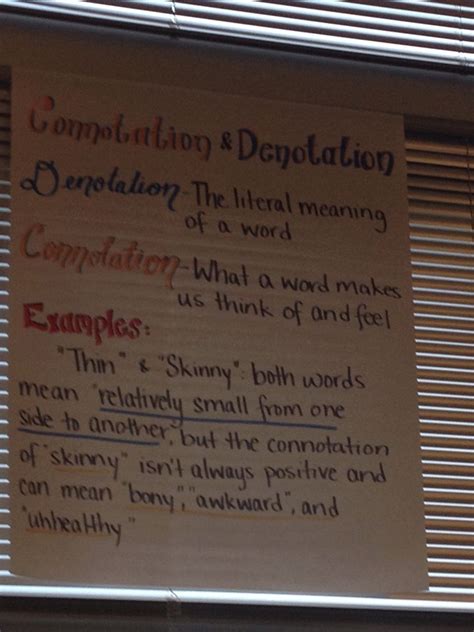 Connotation & Denotation
Denotation - The literal meaning
of a word
Connotation - What a word makes
us think of and feel
Examples:
"Thin" & "Skinny": both words
mean "relatively small from one
side to another, but the connotation
of "skinny" isn't always positive and
can mean "bony", "awkward", and
"uhhealthy"